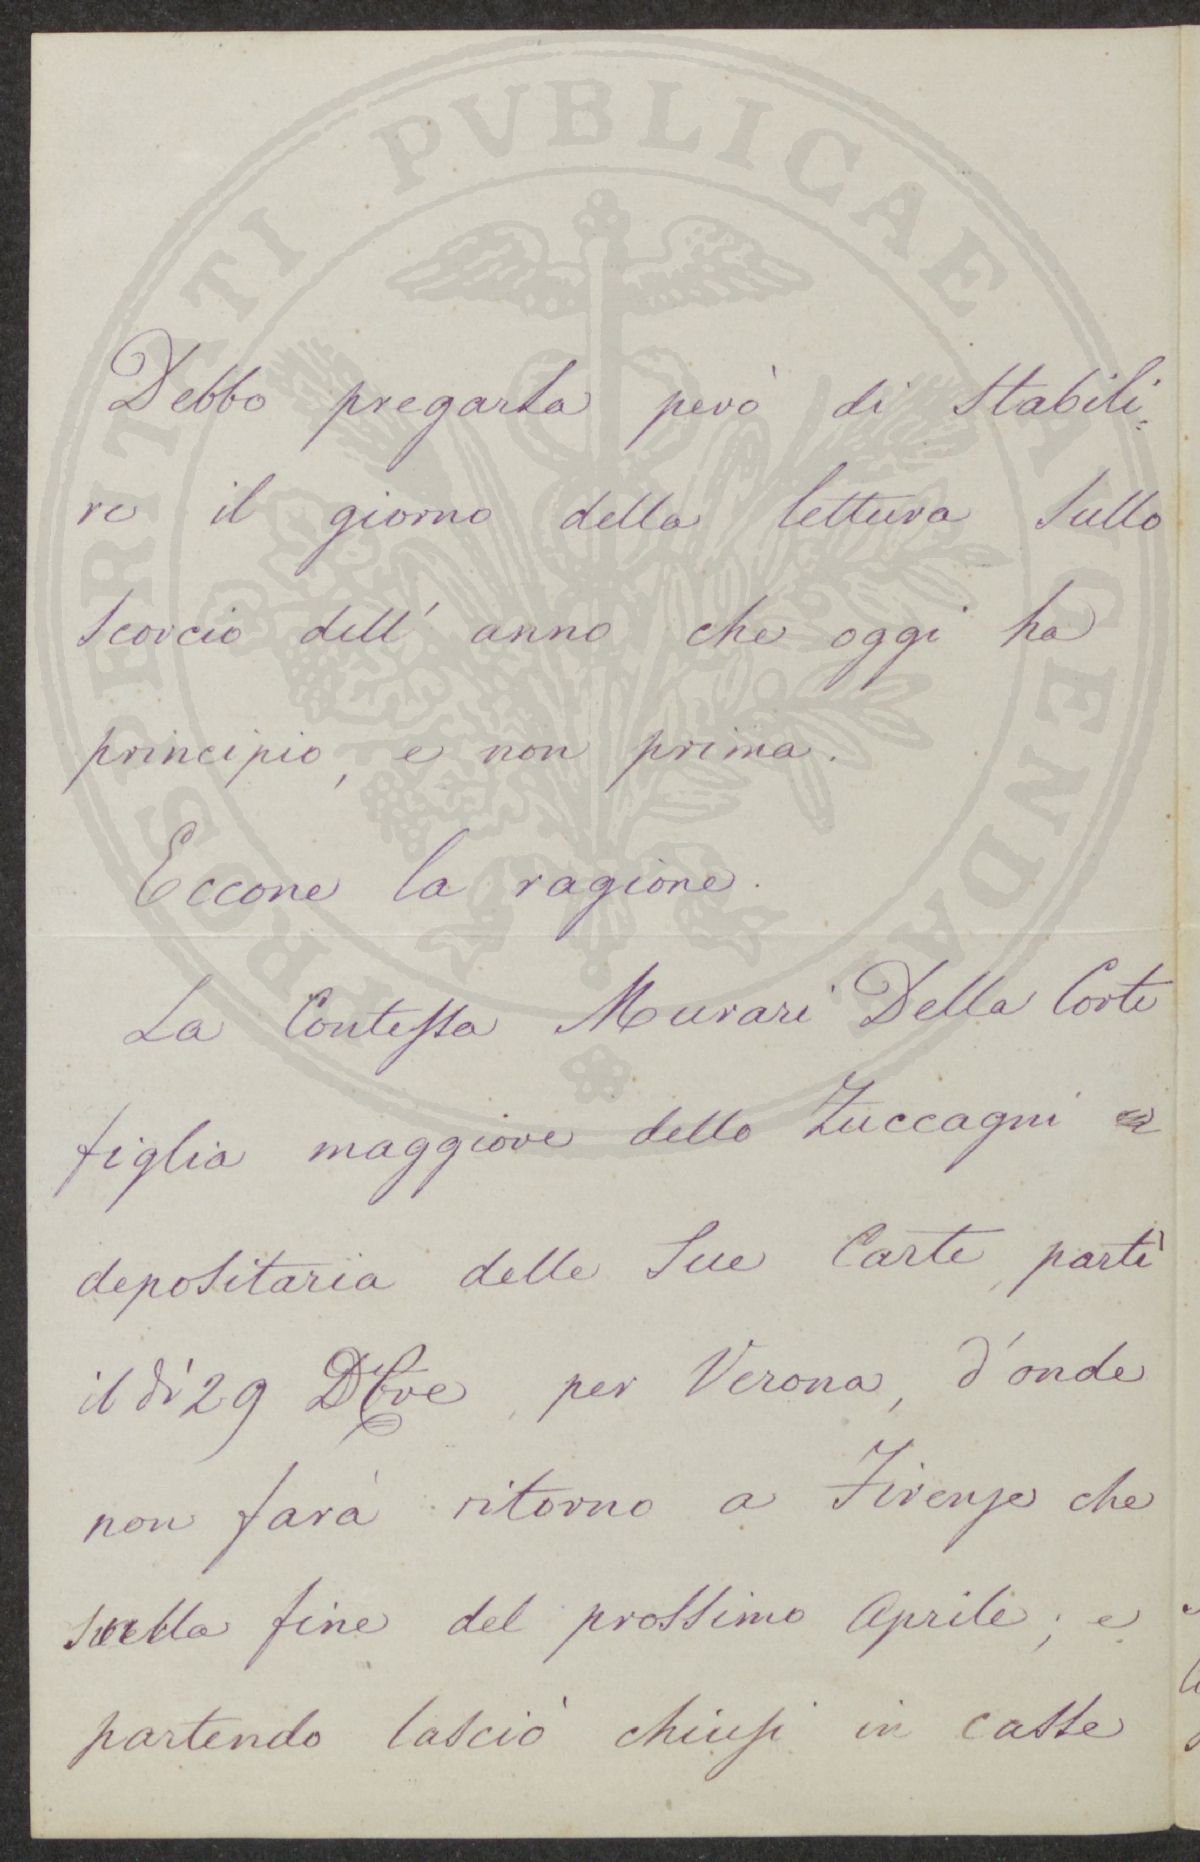 Debbo pregarla però di stabili=
re il giorno della lettura sullo
scorcio dell' anno che oggi ha
principio, e non prima.
Eccone la ragione.
La Contessa Murari Della Corte
figlia maggiore dello Zuccagni e
depositaria delle sue Carte, partì
il dì 29 Dbre, per Verona, d'onde
non farà ritorno a Firenze che
sulla fine del prossimo Aprile; e
partendo lasciò chiusi in casse
PROSPERITATI PVBLICAE AVGENDAE